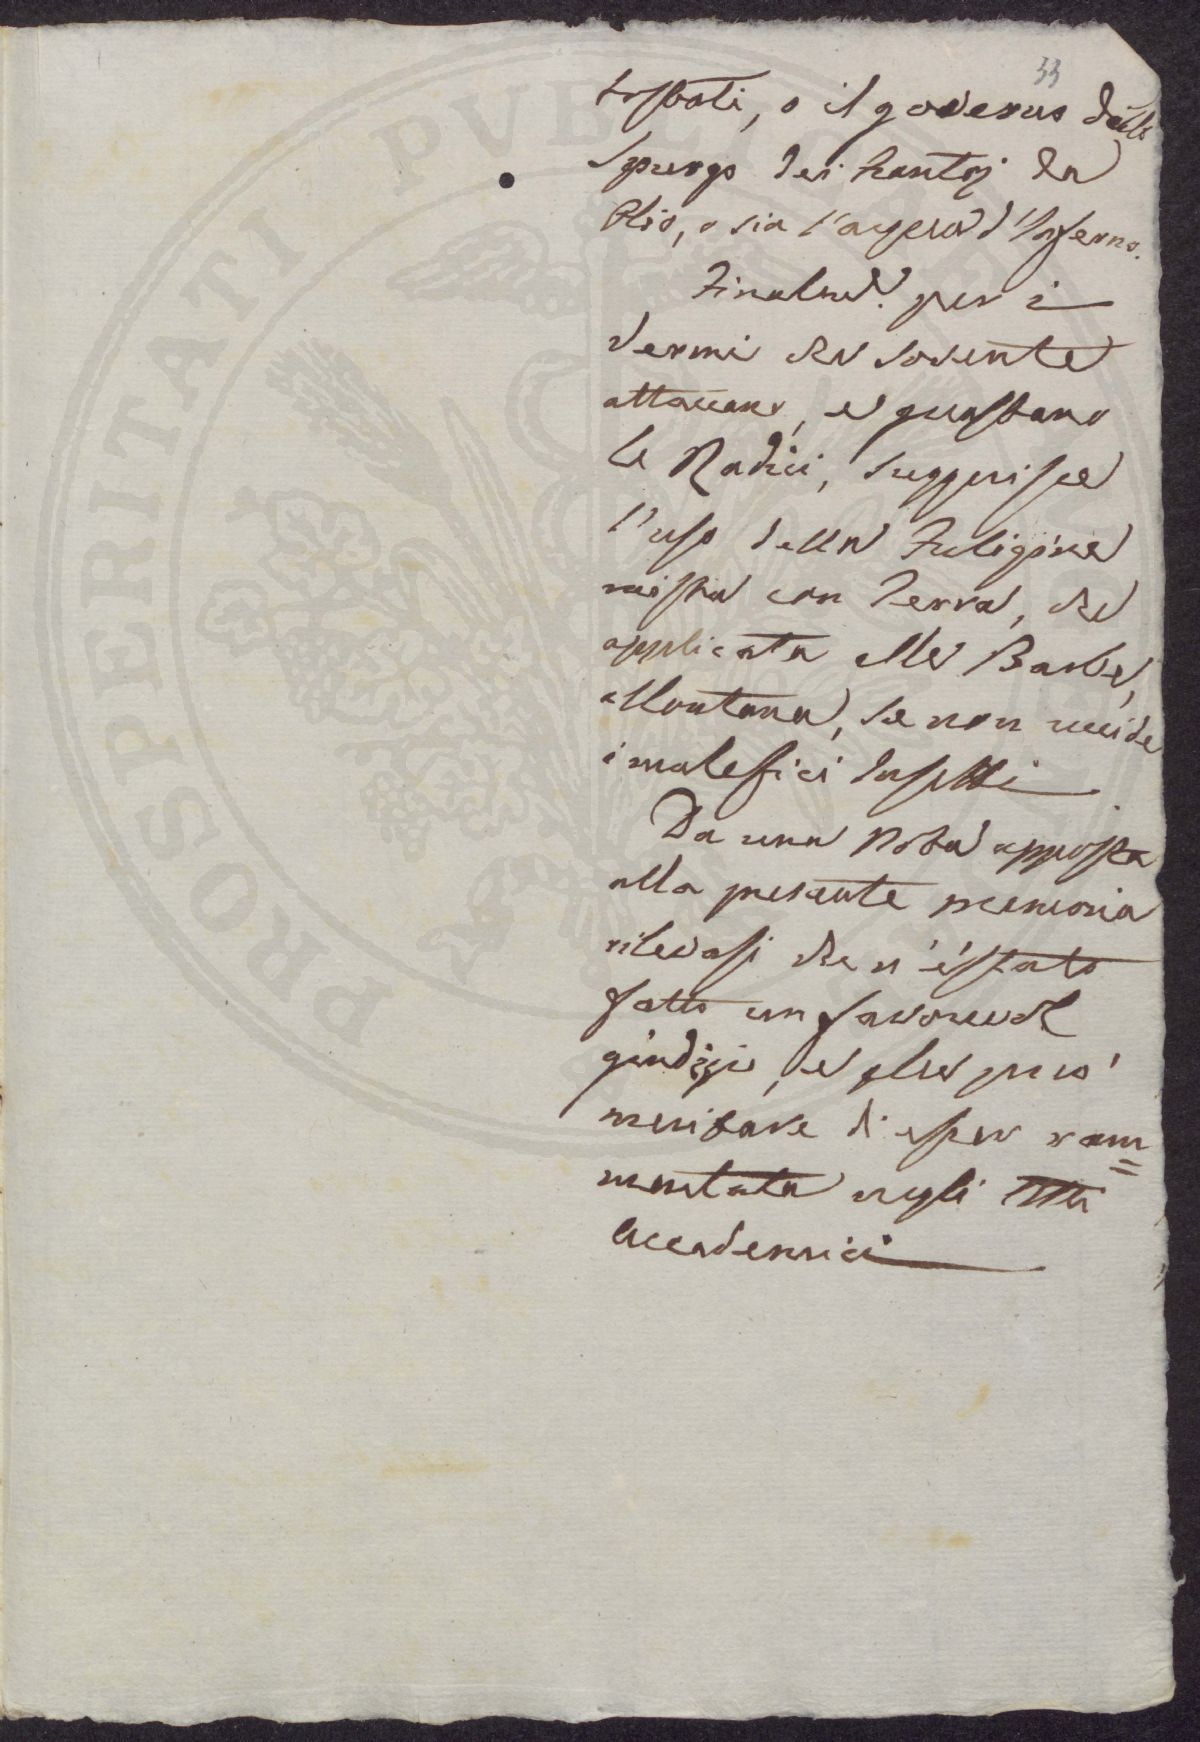 33
tostati, o il governo dello
Spurgo dei Frantoj da
Olio, o sia l'acqua d'Inferno.
Finalmte. per i
Vermi che sovente
attaccano, e guastano
le Radici, suggerisce
l'uso della Fuligine
mista con Terra, che
applicata alle Barbe,
allontana, se non uccide
i malefici Insetti
Da una Nota apposta
alla presente memoria
rilevasi che n'è stato
fatto un favorevole
giudizio, e che può
meritare di esser ram=
mentata negli Atti
Accademici
PROSPERITATI PUBLICAE